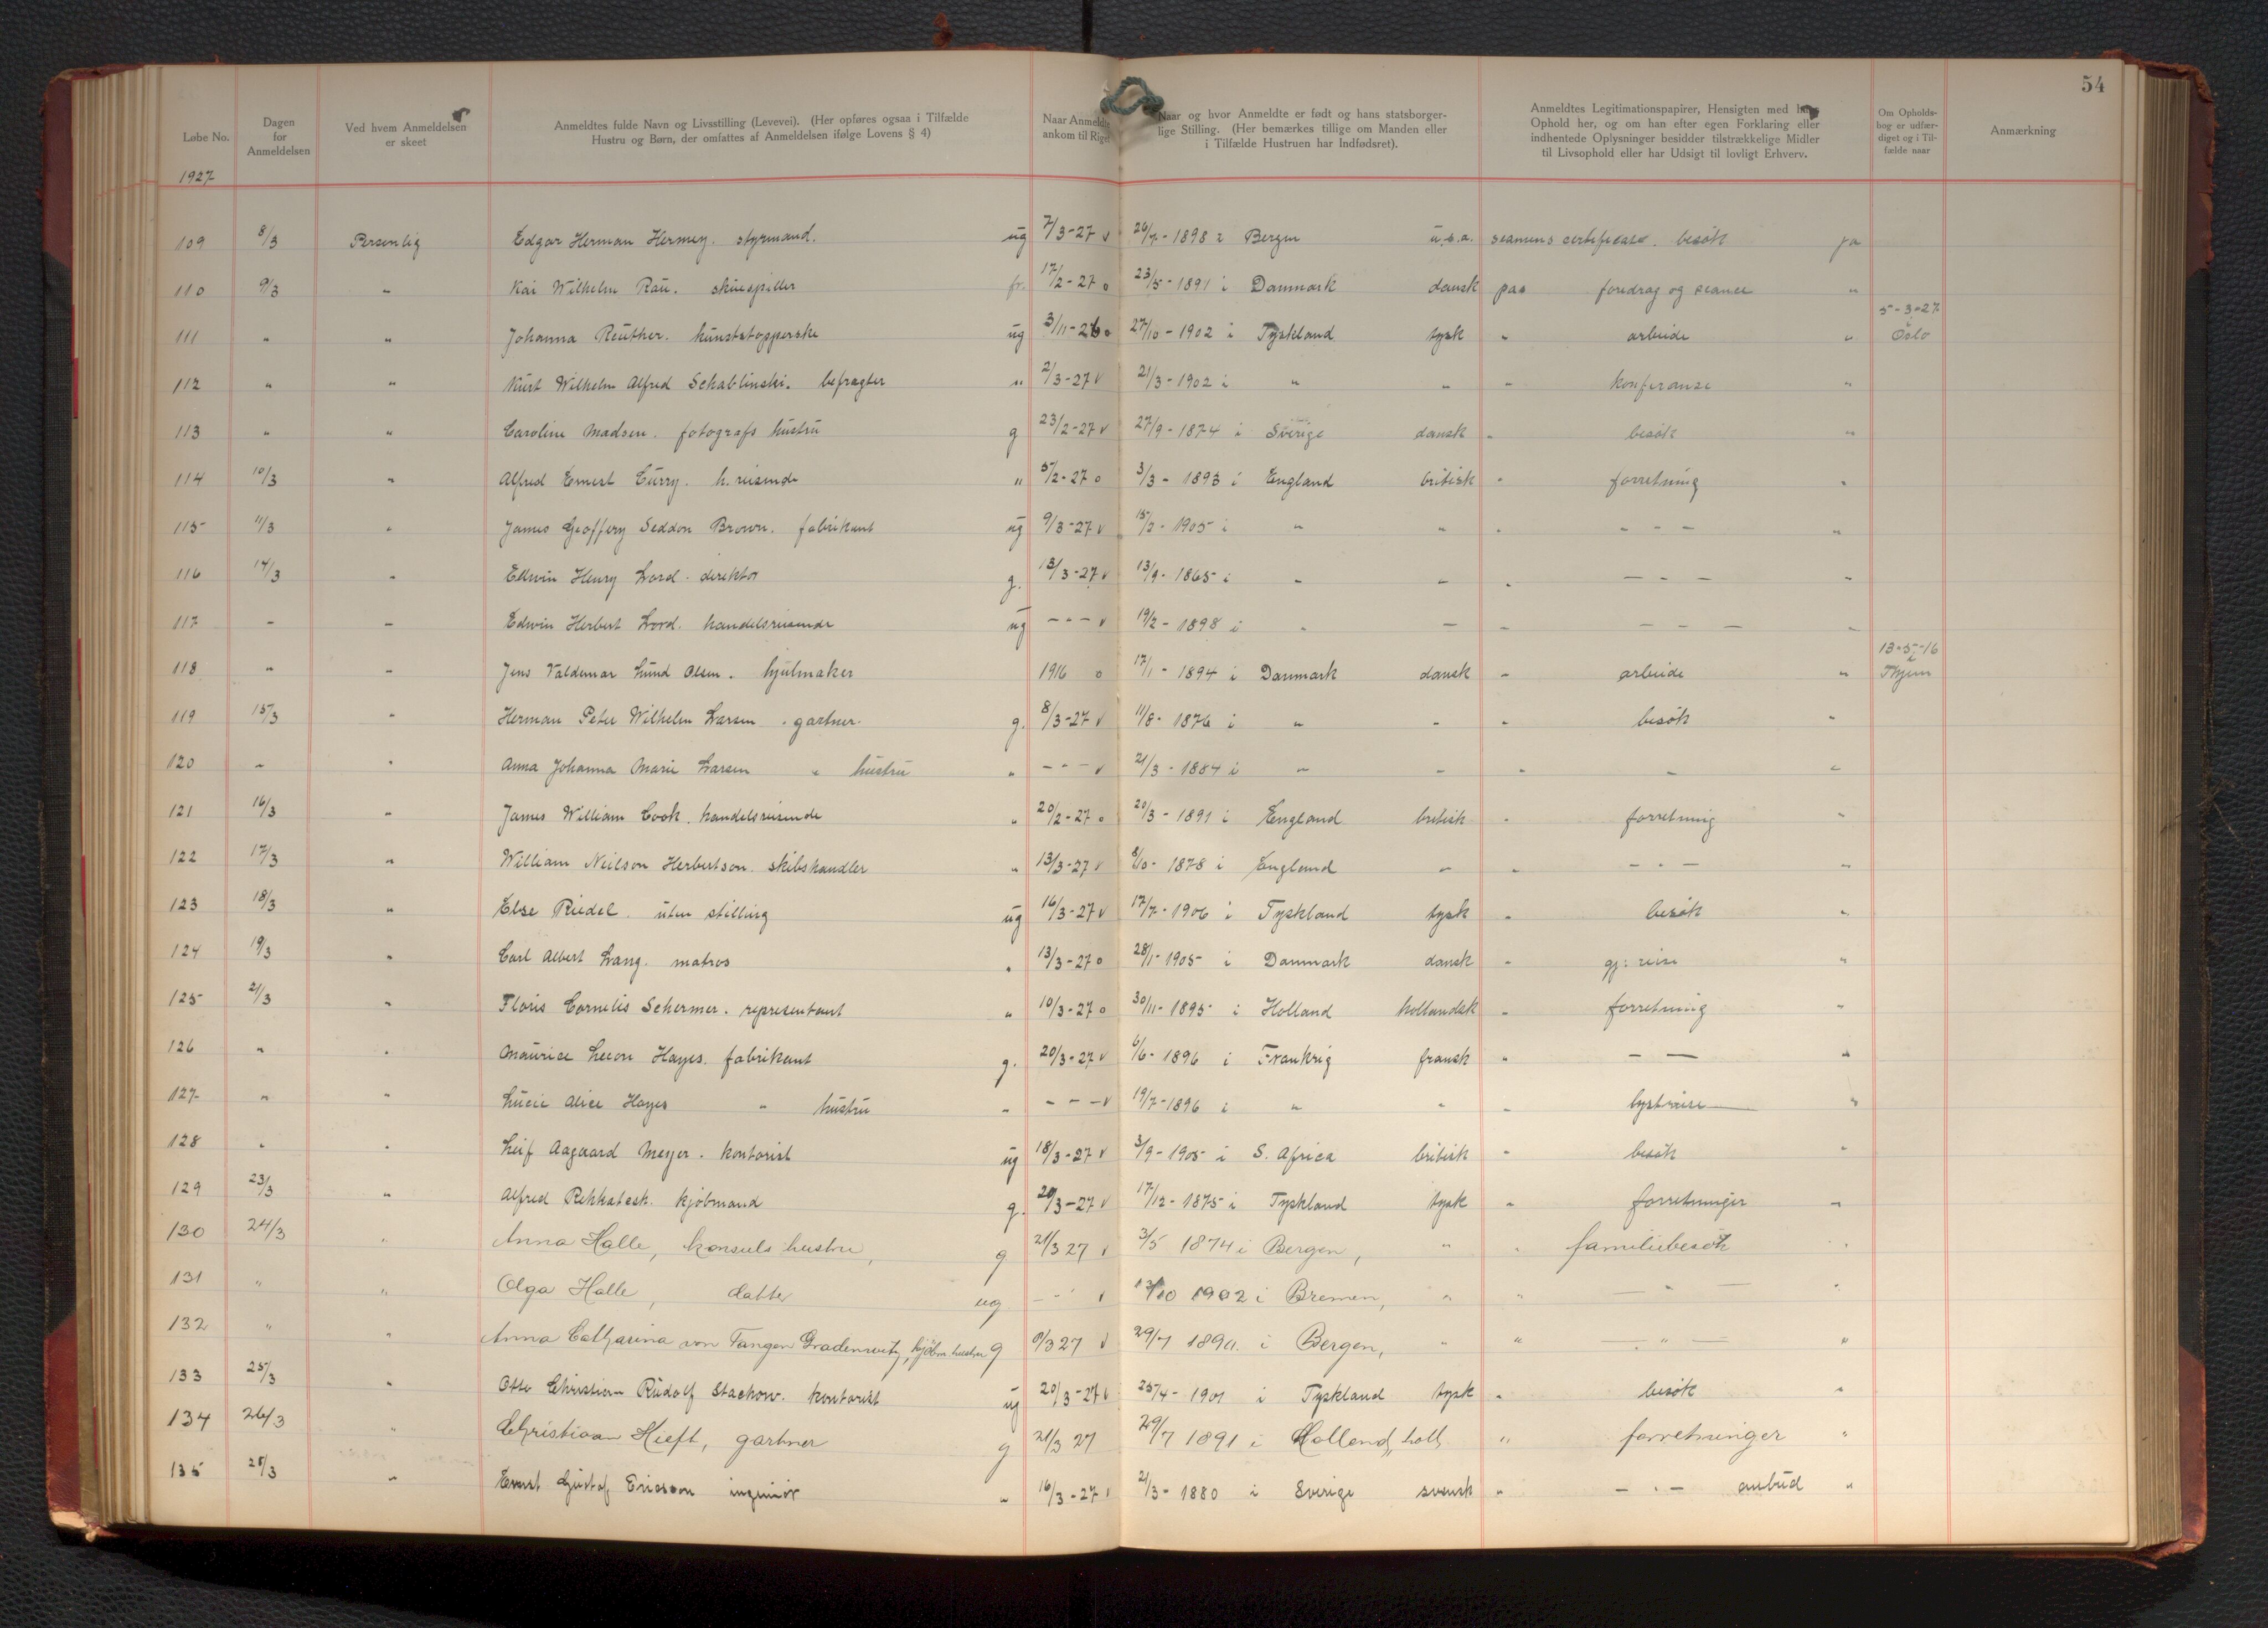 54
Løbe No. Dagen for Anmeldelsen Ved hvem Anmeldelsen er skeet Anmeldtes fulde Navn og Livsstilling (Levevei). (Her opføres ogsaa i Tilfælde Hustru og Børn, der omfattes af Anmeldelsen ifølge Lovens § 4) Naar Anmeldte ankom til Riget Naar og hvor Anmeldte er født og hans statsborgerlige Stilling. (Her bemærkes tillige om Manden eller i Tilfælde Hustruen har Indfødsret). Anmeldtes Legitimationspapirer, Hensigten med hans Ophold her, og om han efter egen Forklaring eller indhentede Oplysninger besidder tilstrækkelige Midler til Livsophold eller har Udsigt til lovligt Erhverv. Om Opholdsbog er udfærdiget og i Tilfælde naar Anmærkning
1927
109 8/3 Personlig Edgar Herman Hermey. styrmand. ug 7/3-27 v 26/7-1898 i Bergen u.s.a. seamens certificate. besök ja
110 9/3 " Kai Wilhelm Rau. skuespiller fr. 17/2-27 o 23/5-1891 i Danmark dansk pas foredrag og seance "
111 " " Johanna Reuther. kunststopperske ug 3/11-26 o 27/10-1902 i Tyskland tysk " arbeide " 5-3-27 i Oslo
112 " " Kurt Wilhelm Alfred Schablinski. befragter " 2/3-27 v 21/3-1902 i " " " konferanse "
113 " " Caroline Madsen. fotografs hustru g 23/2-27 v 27/9-1874 i Sverige dansk " besök "
114 10/3 " Alfred Ernest Curry. h. reisende " 5/2-27 o 3/3-1893 i England britisk " forretning "
115 11/3 " James Geoffery Seddon Brown. fabrikant ug 9/3-27 v 15/2-1905 i " " " - " - "
116 14/3 " Edwin Henry Lord. direktør g. 13/3-27 v 13/9-1865 i " " " - " - "
117 " " Edwin Herbert Lord. handelsreisende ug - " - v 19/2-1898 i " " " - " - "
118 " " Jens Valdemar Lund Olsen. hjulmaker 1916 o 17/1-1894 i Danmark dansk " arbeide " 13-5-16 i
119 15/3 " Herman Peter Wilhelm Larsen. gartner. g. 8/3-27 v 11/8-1876 i " " " besök "
120 " " Anna Johanna Marie Larsen " hustru " - " - v 21/3-1884 i " " " " "
121 16/3 " James William Cook. handelsreisende " 20/2-27 o 20/3-1891 i England britisk " forretning "
122 17/3 " William Neilson Herbertson. skibshandler " 13/3-27 v 8/10-1878 i England " " - " - "
123 18/3 " Else Riedel. uten stilling ug 16/3-27 v 17/7-1906 i Tyskland tysk " besök "
124 19/3 " Carl Albert Lang. matros " 13/3-27 o 28/1-1905 i Danmark dansk " gj: reise "
125 21/3 " Floris Cornelis Schermer. representant " 10/3-27 o 30/11-1895 i Holland hollandsk " forretning "
126 " " Maurice Leon Hayes. fabrikant g. 20/3-27 v 6/6-1896 i Frankrig fransk " - - "
127 " " Lucie Alice Hayes " hustru " - " - v 19/7-1896 i " " " lystreise "
128 " " Leif Aagaard Meyer. kontorist ug 18/3-27 v 3/9-1905 i S. Africa britisk " besök "
129 23/3 " Alfred kjöbmand g. 20/3-27 v 17/12-1875 i Tyskland tysk " forretninger "
130 24/3 " Anna Halle, konsuls hustru, g 21/3 27 v 3/5 1874 i Bergen, " " familiebesök "
131 " " Olga Halle, datter ug - " - v 13/10 1902 i Bremen, " " - " - "
132 " " Anna Catharina von Tangen Gradenwitz, kjöbm. hustru g /3 27 v 29/7 1890. i Bergen, " " - " - "
133 25/3 " Otto Christian Rudolf Stachow. kontorist ug 20/3-27 v 25/4-1901 i Tyskland tysk " besök "
134 26/3 " Christiaan Hieft, gartner g 21/3 27 29/7 1891 i Holland, holl. " forretninger "
135 28/3 " Ernst Gustaf Ericsson ingeniör " 16/3-27 v 21/3-1880 i Sverige svensk " - " - anbud "